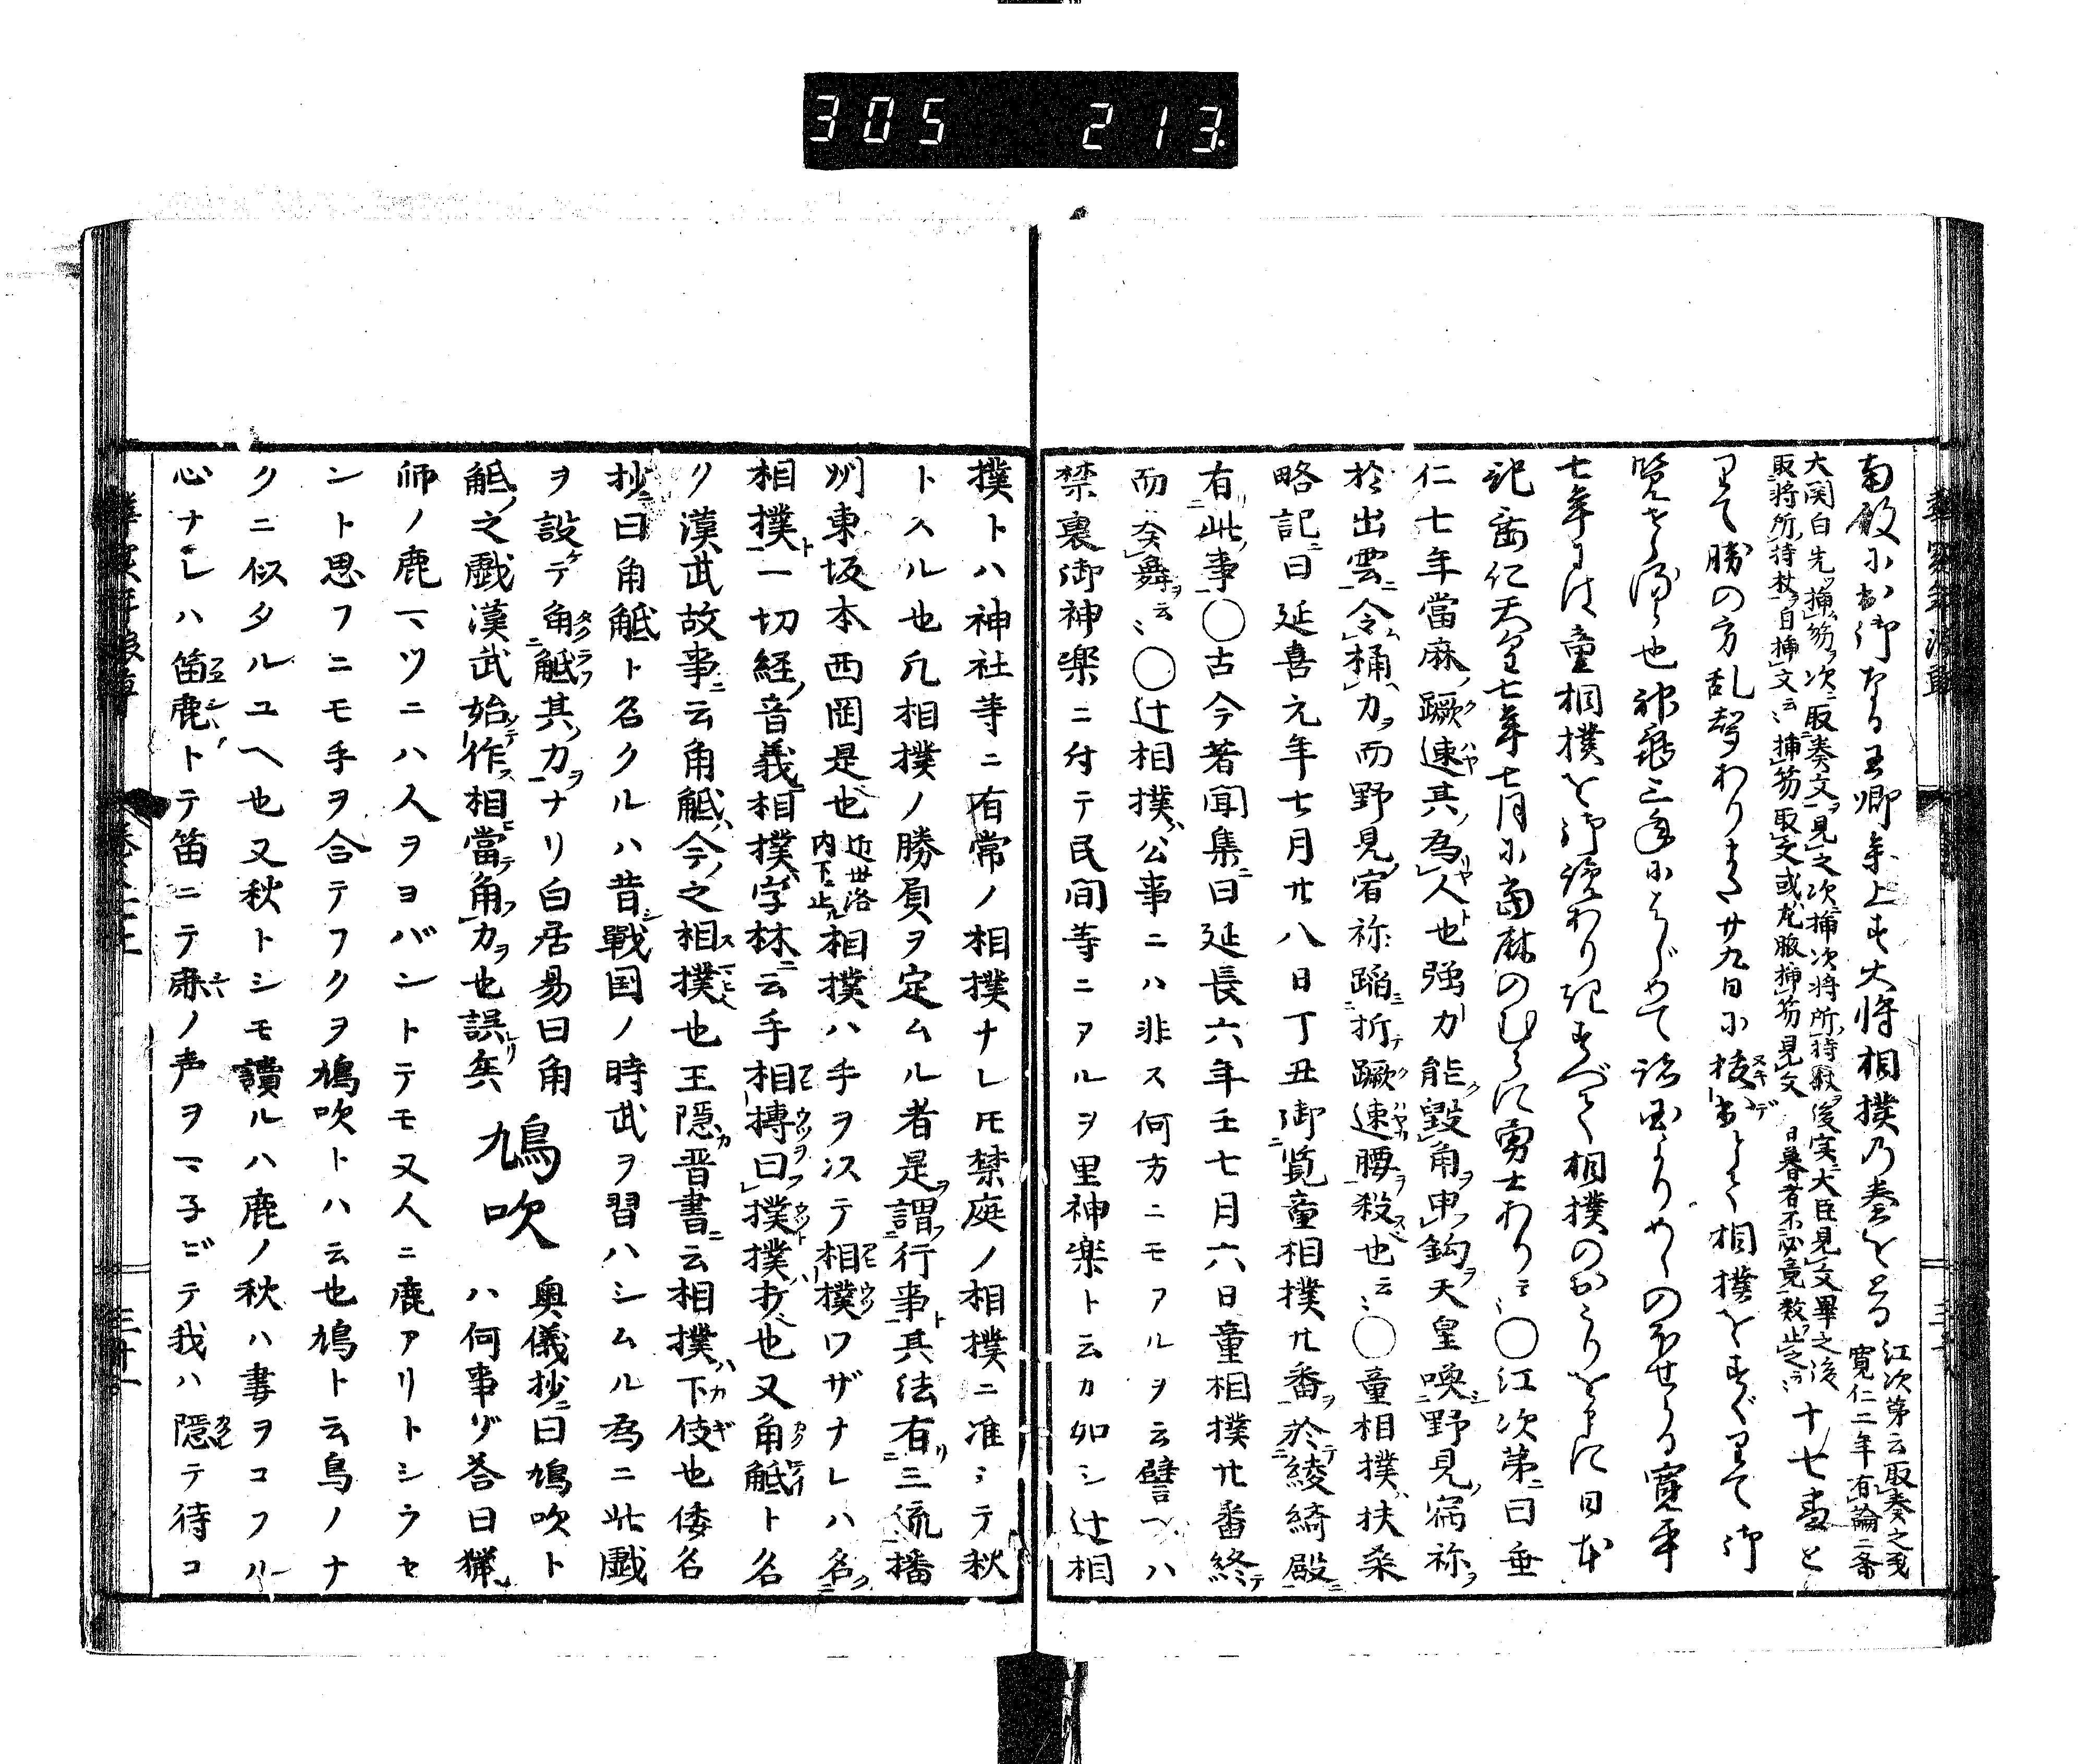 305 213
南殿に出御なる王卿参上す大将相撲の奏をとる
江次第云取奏之我
寛仁二年有論二条
大関白先挿笏次取奏文見之次挿次将所持杖後実大臣見文畢之後
取将所持杖自挿文云〻挿笏取文或左腋挿笏見文
日暮者不必竟数止之
十七番と
わて勝の方乱声わりまた廿九日に抜出とて相撲をすぐりて御
覧ぜらるゝ也神亀三年にはじめて諸国よりめしのぼせらる寛平
七年には童相撲を御覧わりきすべて相撲のおこりを申に日本
紀垂仁天皇七年七月に当麻のむらに勇士わり云〻〇江次第ニ曰垂
仁七年當麻ノ蹶速其ノ為人也強力能毀角申鈎天皇喚野見宿祢ヲ
於出雲令桷力而野見宿祢蹈折蹶速腰殺也云〻〇童相撲ハ扶桒
略記ニ曰延喜元年七月廿八日丁丑御覧童相撲廿番於綾綺殿
有此事〇古今著聞集ニ曰延長六年壬七月六日童相撲廿番終テ
而奏舞云〻〇辻相撲ハ公事ニハ非ス何方ニモアルヲ云譬ヘハ
禁裏御神楽ニ対テ民間等ニアルヲ里神楽ト云カ如シ辻相
撲トハ神社等ニ有常ノ相撲ナレ𪜈禁庭ノ相撲ニ准シテ秋
トスル也凡相撲ノ勝負ヲ定ムル者是ヲ謂行事ト其法有リ三流播
州東坂本西岡是也
近世洛
内下止
相撲ハ手ヲ以テ相撲ワザナレハ名ク
相撲ト一切経ノ音義相撲ハ字林ニ云手相搏曰撲撲ハ打也又角觝ト名
ク漢武故事ニ云角觝ハ今ノ之相撲也王隠カ晋書ニ云相撲ハ下伎也倭名
抄ニ曰角觝ト名クルハ昔シ戰国ノ時武ヲ習ハシムル為ニ此戯
ヲ設ケテ角觝其ノ力ヲナリ白居易曰角
觝之戯漢武始テ作ス相當テ角力ヲ也誤矣
鳩吹
奥儀抄ニ曰鳩吹ト
ハ何事ゾ荅曰猟
师ノ鹿マツニハ人ヲヨバントテモ又人ニ鹿アリトシラセ
ント思フニモ手ヲ合テフクヲ鳩吹トハ云也鳩ト云鳥ノナ
クニ似タルユヘ也又秋トシモ讀ルハ鹿ノ秋ハ妻ヲコフル
心ナレハ笛鹿トテ笛ニテ鹿ノ声ヲマ子ビテ我ハ隠テ待コ